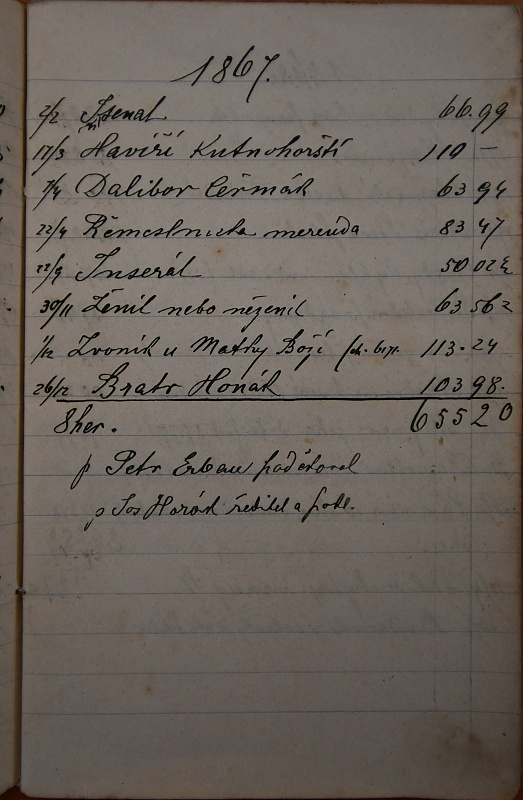 1867.
2/2 Isenal 66.99
17/3 Havíří Kutnohorští 110 –
7/4 Dalibor Čermák 63 94
22/4 Řemeslnická merenda 83 47
22/9 Inserát 50 02½
30/11 Ženil nebo neženil 63 56 2
1/12 Zvoník u Matky Boží 113.24
26/12 Bratr Honák 103 98.
8 her. 655 20
p Petr Erban poděkoval
p Jos Horák ředitel a pokl.